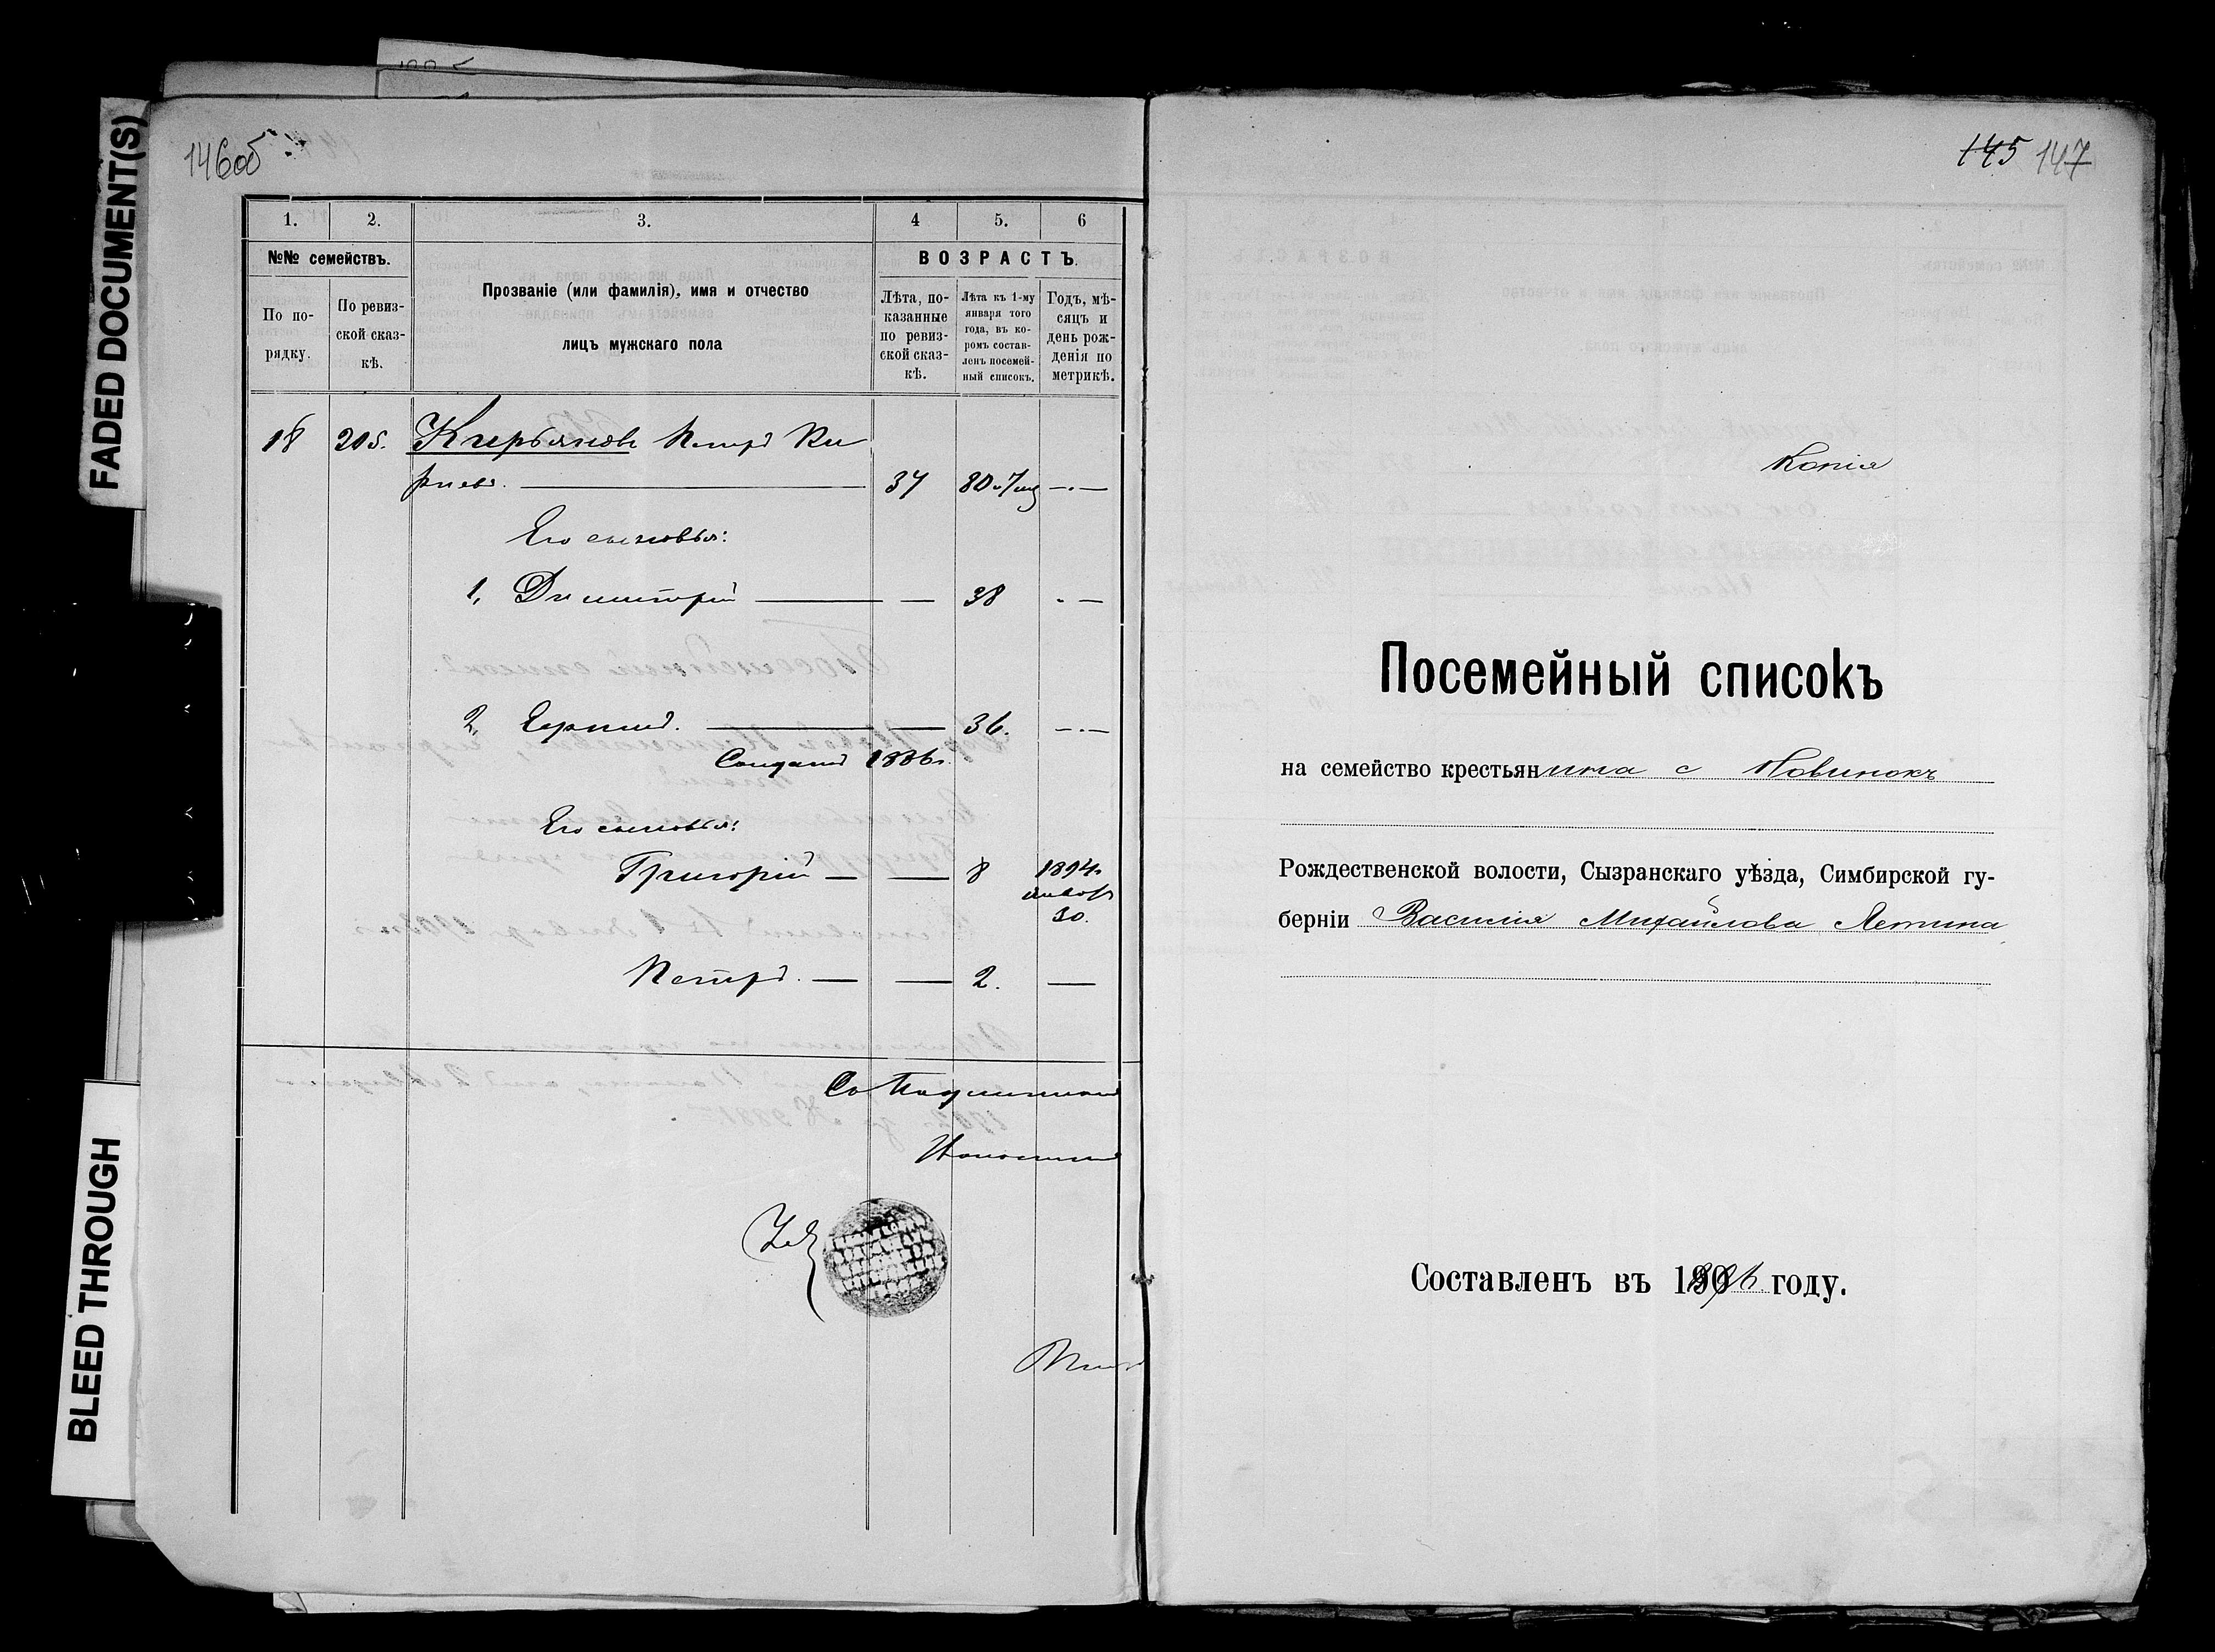 FADED DOCUMENT(S)
BLEED THROUGH
146об
1. 2. 3. 4 5. 6
№№ семействъ.
По по-
рядку.
По ревиз-
ской сказ-
кѣ.
Прозваніе (или фамилія), имя и отчество
лицъ мужскаго пола
ВОЗРАСТЪ.
Лѣта, по-
казанные
по ревиз-
ской сказ-
кѣ.
Лѣта къ 1-му
января того
года, въ ко-
ромъ состав-
ленъ посемей-
ный списокъ.
Годъ, мѣ-
сяцъ и
день рож-
денія по
метрикѣ.
18 205. Кирьяновъ Петръ Ки
ріевъ. — 37 80
Его сыновья:
1, Димитрій — — 38 . —
2, — 36. —
Солдатъ 1886г.
Его сыновья:
Григорій — — 8 1894г
январ
30.
Петръ. — — 2. —
Съ подлиннымъ
145 147
Копія
Посемейный списокъ
на семейство крестьянина с Новинокъ
Рождественской волости, Сызранскаго уѣзда, Симбирской гу-
берніи Василія Михайлова Летина
Составленъ въ 190 году.